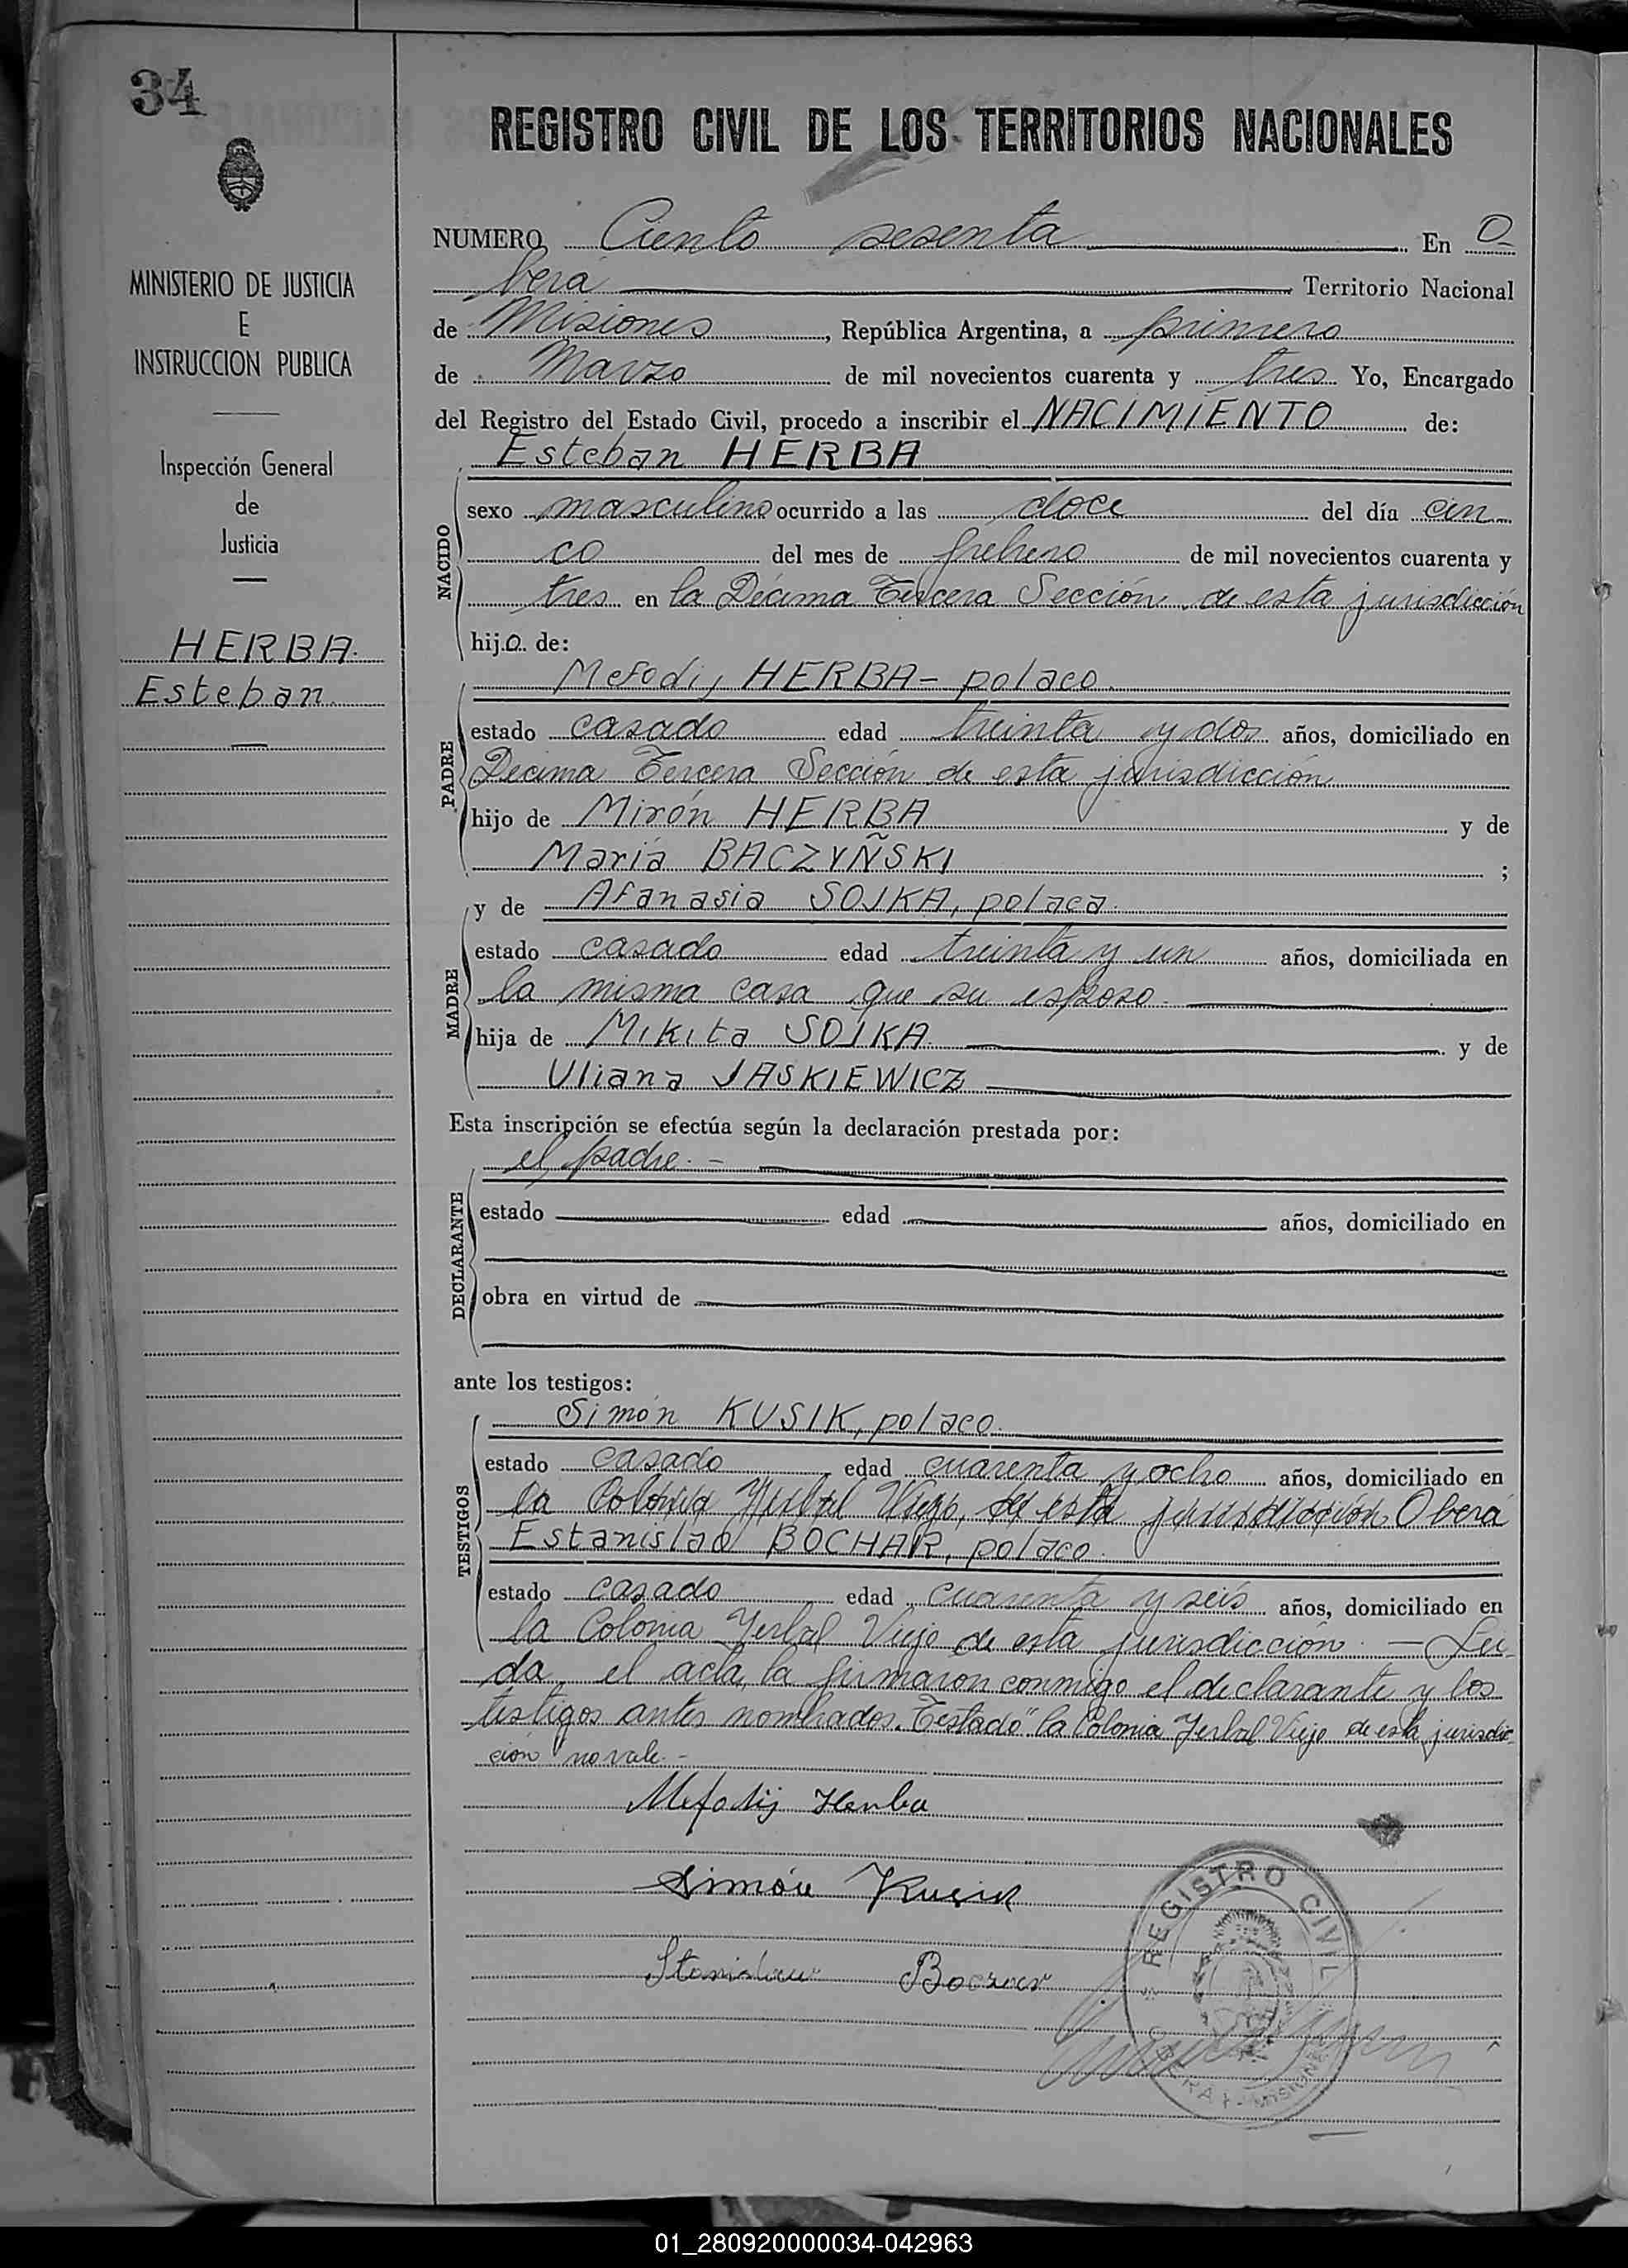 34
MINISTERIO DE JUSTICIA
E
INSTRUCCION PUBLICA
Inspección General
de
Justicia
HERBA.
Esteban
REGISTRO CIVIL DE LOS TERRITORIOS NACIONALES
NUMERO Ciento sesenta En O-
berá Territorio Nacional
de Misiones, República Argentina, a primero
de Marzo de mil novecientos cuarenta y tres Yo, Encargado
del Registro del Estado Civil, procedo a inscribir el NACIMIENTO de:
Esteban HERBA
NACIDO
sexo masculino ocurrido a las doce del día cin-
co del mes de febrero de mil novecientos cuarenta y
tres en la Décima Tercera Sección de esta jurisdicción
hijo de:
PADRE
Mefodij HERBA - polaco.
estado casado edad treinta y dos años, domiciliado en
Decima Tercera Sección de esta jurisdicción
hijo de Mirón HERBA y de
María BACZYÑSKI ;
MADRE
y de Afanasia SOJKA, polaca.
estado casado edad treinta y un años, domiciliada en
la misma casa que su esposo.
hija de Mikita SOJKA. y de
Uliana JASKIEWICZ
Esta inscripción se efectúa según la declaración prestada por:
DECLARANTE
el padre. -
estado edad años, domiciliado en
obra en virtud de
ante los testigos:
TESTIGOS
Simón KUSIK, polaco.
estado casado edad cuarenta y ocho años, domiciliado en
la Colonia Yerbal Viejo, de esta jurisdicción Oberá
Estanislao BOCHAR, polaco.
estado casado edad cuarenta y seis años, domiciliado en
la Colonia Yerbal Viejo de esta jurisdicción. — Lei-
da el acta, la firmaron conmigo el declarante y los
testigos antes nombrados. Testado "la Colonia Yerbal Viejo de esta jurisdic-
ción" no vale. -
Mefodij Herba
Simón Kusik
Stanisław Boczar
REGISTRO CIVIL
OBERA - MISIONES
01_280920000034-042963